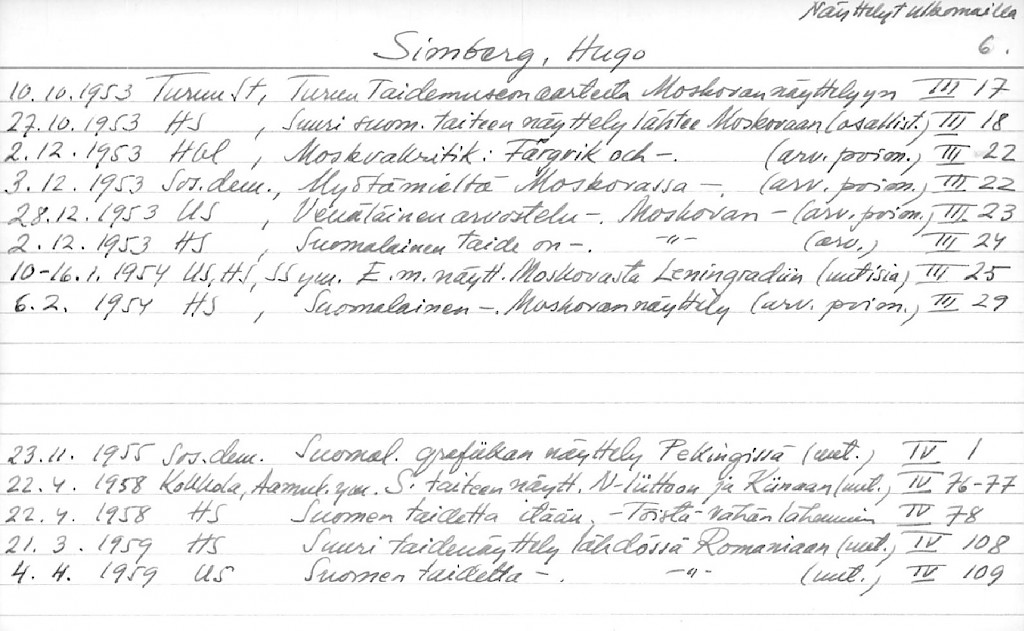 Näyttelyt ulkomailla
6.
Simberg, Hugo
10.10.1953 Turun St, Turun Taidemuseon aarteita Moskovan näyttelyyn III 17
27.10.1953 HS , Suuri suom. taiteen näyttely lähtee Moskovaan (osallist.) III 18
2.12.1953 Hbl , Moskvakritik: Färgrik och -. (arv. poim.) III 22
3.12.1953 Sos.dem., Myötämieltä Moskovassa -. (arv. poim.) III 22
28.12.1953 US , Venäläinen arvostelu -. Moskovan - (arv. poim.) III 23
2.12.1953 HS , Suomalainen taide on -. -"- (arv.) III 24
10-16.1.1954 US, HS, SS ym. E.m. näytt. Moskovasta Leningradiin (uutisia) III 25
6.2. 1954 HS , Suomalainen -. Moskovan näyttely (arv. poim.) III 29
23.11.1955 Sos.dem. Suomal. grafiikan näyttely Pekingissä (uut.) IV 1
22.4.1958 Kokkola, Aamul. ym. S. taiteen näytt. N-liittoon ja Kiinaan (uut.) IV 76-77
22.4.1958 HS Suomen taidetta itään, - Toista vähän IV 78
21.3.1959 HS Suuri taidenäyttely lähdössä Romaniaan (uut.) IV 108
4.4.1959 US Suomen taidetta -. -"- (uut.) IV 109